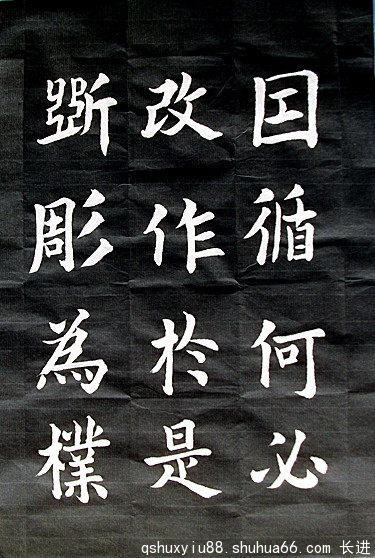 囙循何必
改作於是
斲彫為樸
qshuxyiu88.shuhua66.com 长进